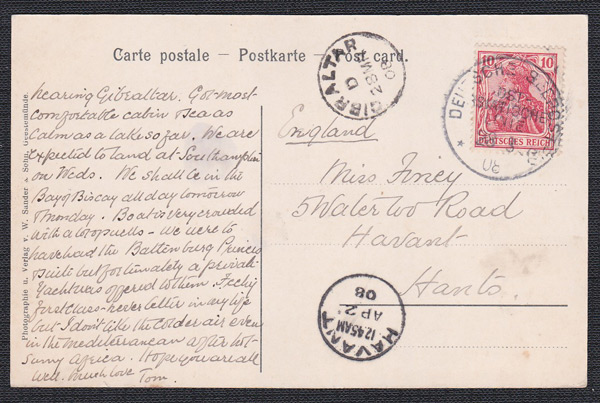 Carte postale – Postkarte – Post card.
Photographie u. Verlag v. W. Sander & Sohn, Geestemünde.
nearing Gibraltar. Got most
comfortable cabin Sea as
Calm as a lake so far. We are
expected to land at Southampton
on Weds. We shall be in the
Bay of Biscay all day tomorrow
Monday. Boat is very crowded
with a lot of swells – we were to
have had the Battenburg Princes
suite but fortunately a private
Yacht was offered to them. Feeling
first class – never better in my life
but I don't like the colder air even
in the Mediterranean after hot
Sunny Africa. Hope you are all
well. Much love Tom.
GIBRALTAR
D
28 MR
08
10 10
DEUTSCHES REICH
England
Miss Finey
5 Waterloo Road
Havant
Hants.
HAVANT
12.45AM
AP 2
08